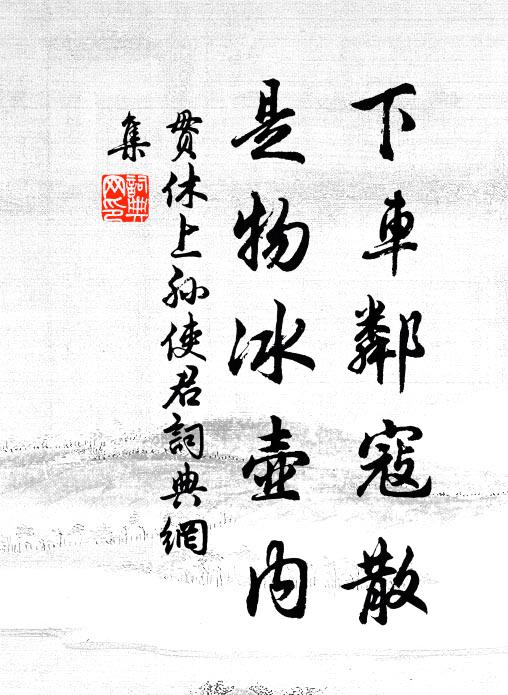 下車鄰寇散
是物冰壺内
貫休上孫使君詞典網
集
詞典
网印